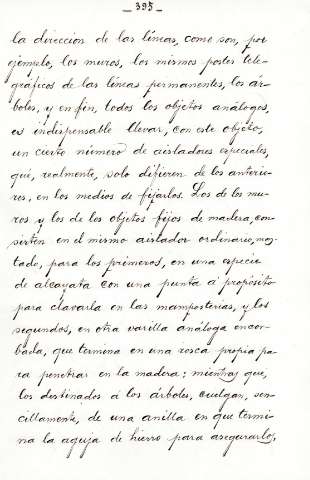 _ 395 _
la direccion de las líneas, como son, por
ejemplo, los muros, los mismos postes tele-
gráficos de las líneas permanentes, los ár-
boles, y en fin, todos los objetos análogos,
es indispensable llevar, con este objeto,
un cierto número de aisladores especiales,
qué, realmente, solo difieren de los anterio-
res, en los medios de fijarlos. Los de los mu-
ros y los de los objetos fijos de madera, con-
sisten en el mismo aislador ordinario, mon-
tado, para los primeros, en una especie
de alcayata con una punta á propósito
para clavarla en las mamposterias, y los
segundos, en otra varilla análoga encor-
bada, que termina en una rosca propia pa-
ra penetrar en la madera; mientras que,
los destinados á los árboles, cuelgan, sen-
cillamente, de una anilla en que termi-
na la aguja de hierro para asegurarlos,